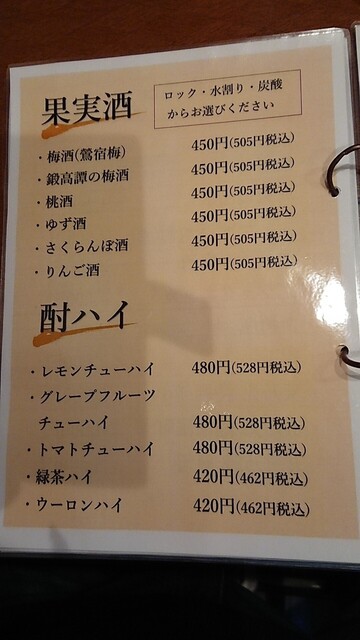 果実酒
ロック・水割り・炭酸
からお選びください
・梅酒(鶯宿梅) 450円(505円税込)
・鍛高譚の梅酒 450円(505円税込)
・桃酒 450円(505円税込)
・ゆず酒 450円(505円税込)
・さくらんぼ酒 450円(505円税込)
・りんご酒 450円(505円税込)
酎ハイ
・レモンチューハイ 480円(528円税込)
・グレープフルーツ
チューハイ 480円(528円税込)
・トマトチューハイ 480円(528円税込)
・緑茶ハイ 420円(462円税込)
・ウーロンハイ 420円(462円税込)